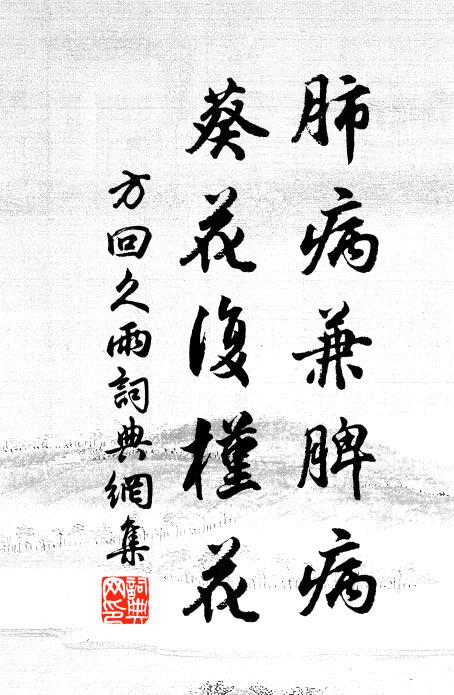 肺病兼脾病
葵花復槿花
方回久雨詞典網集
詞典网印